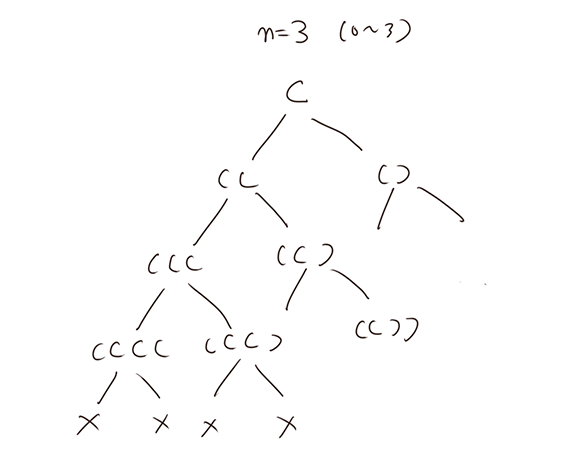 n=3 (0~3)
(
(( ()
((( (()
(((( ((() (())
x x x x